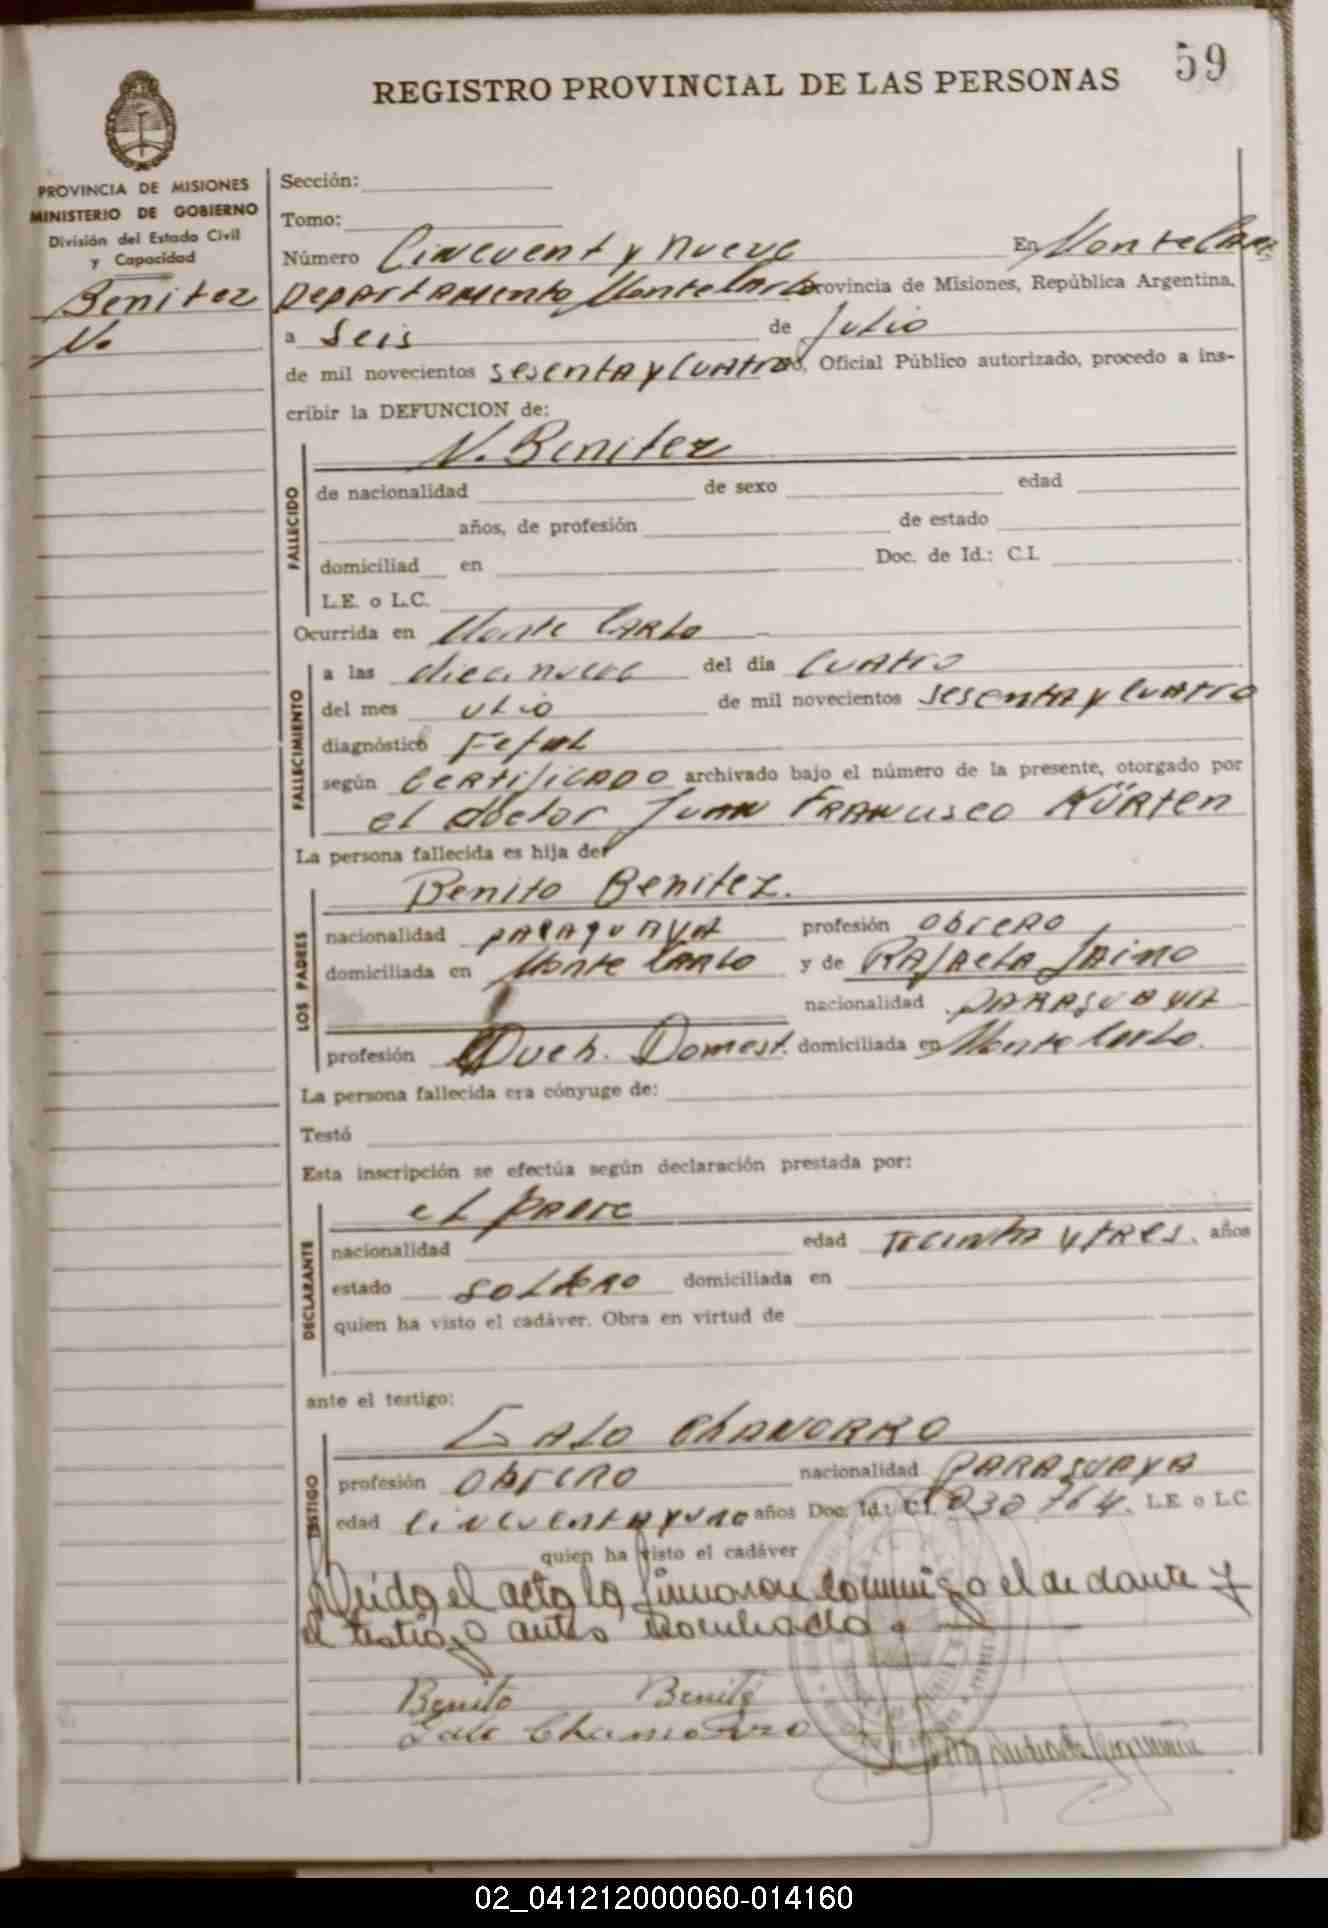 59
REGISTRO PROVINCIAL DE LAS PERSONAS
PROVINCIA DE MISIONES
MINISTERIO DE GOBIERNO
División del Estado Civil
y Capacidad
Benitez
N.
Sección:
Tomo:
Número Cincuent y nueve En Monte Carlo
Departamento Monte Carlo Provincia de Misiones, República Argentina,
a seis de Julio
de mil novecientos sesenta y cuatro, Oficial Público autorizado, procedo a ins-
cribir la DEFUNCION de:
N. Benitez
FALLECIDO
de nacionalidad de sexo edad
años, de profesión de estado
domiciliad en Doc. de Id.: C.I.
L.E. o L.C.
Ocurrida en Monte Carlo
FALLECIMIENTO
a las diecinueve del día cuatro
del mes de mil novecientos sesenta y cuatro
diagnóstico Fetal
según certificado archivado bajo el número de la presente, otorgado por
el doctor Juan Francisco Kürten
La persona fallecida es hija de:
LOS PADRES
Benito Benitez.
nacionalidad paraguaya profesión obrero
domiciliada en Monte Carlo y de Rafaela Jaimo
nacionalidad paraguaya
profesión Queh. Domest. domiciliada en Monte Carlo.
La persona fallecida era cónyuge de:
Testó
Esta inscripción se efectúa según declaración prestada por:
DECLARANTE
el padre
nacionalidad edad treinta y tres. años
estado soltero domiciliada en
quien ha visto el cadáver. Obra en virtud de
ante el testigo:
TESTIGO
Lalo Chamorro
profesión obrero nacionalidad paraguaya
edad cincuenta y uno años Doc. Id.: C.I. 030764. L.E. o L.C.
quien ha visto el cadáver
Leída el acta la firmaron conmigo el y
el testigo antes
Benito Benite
Lalo Chamorro
02_041212000060-014160